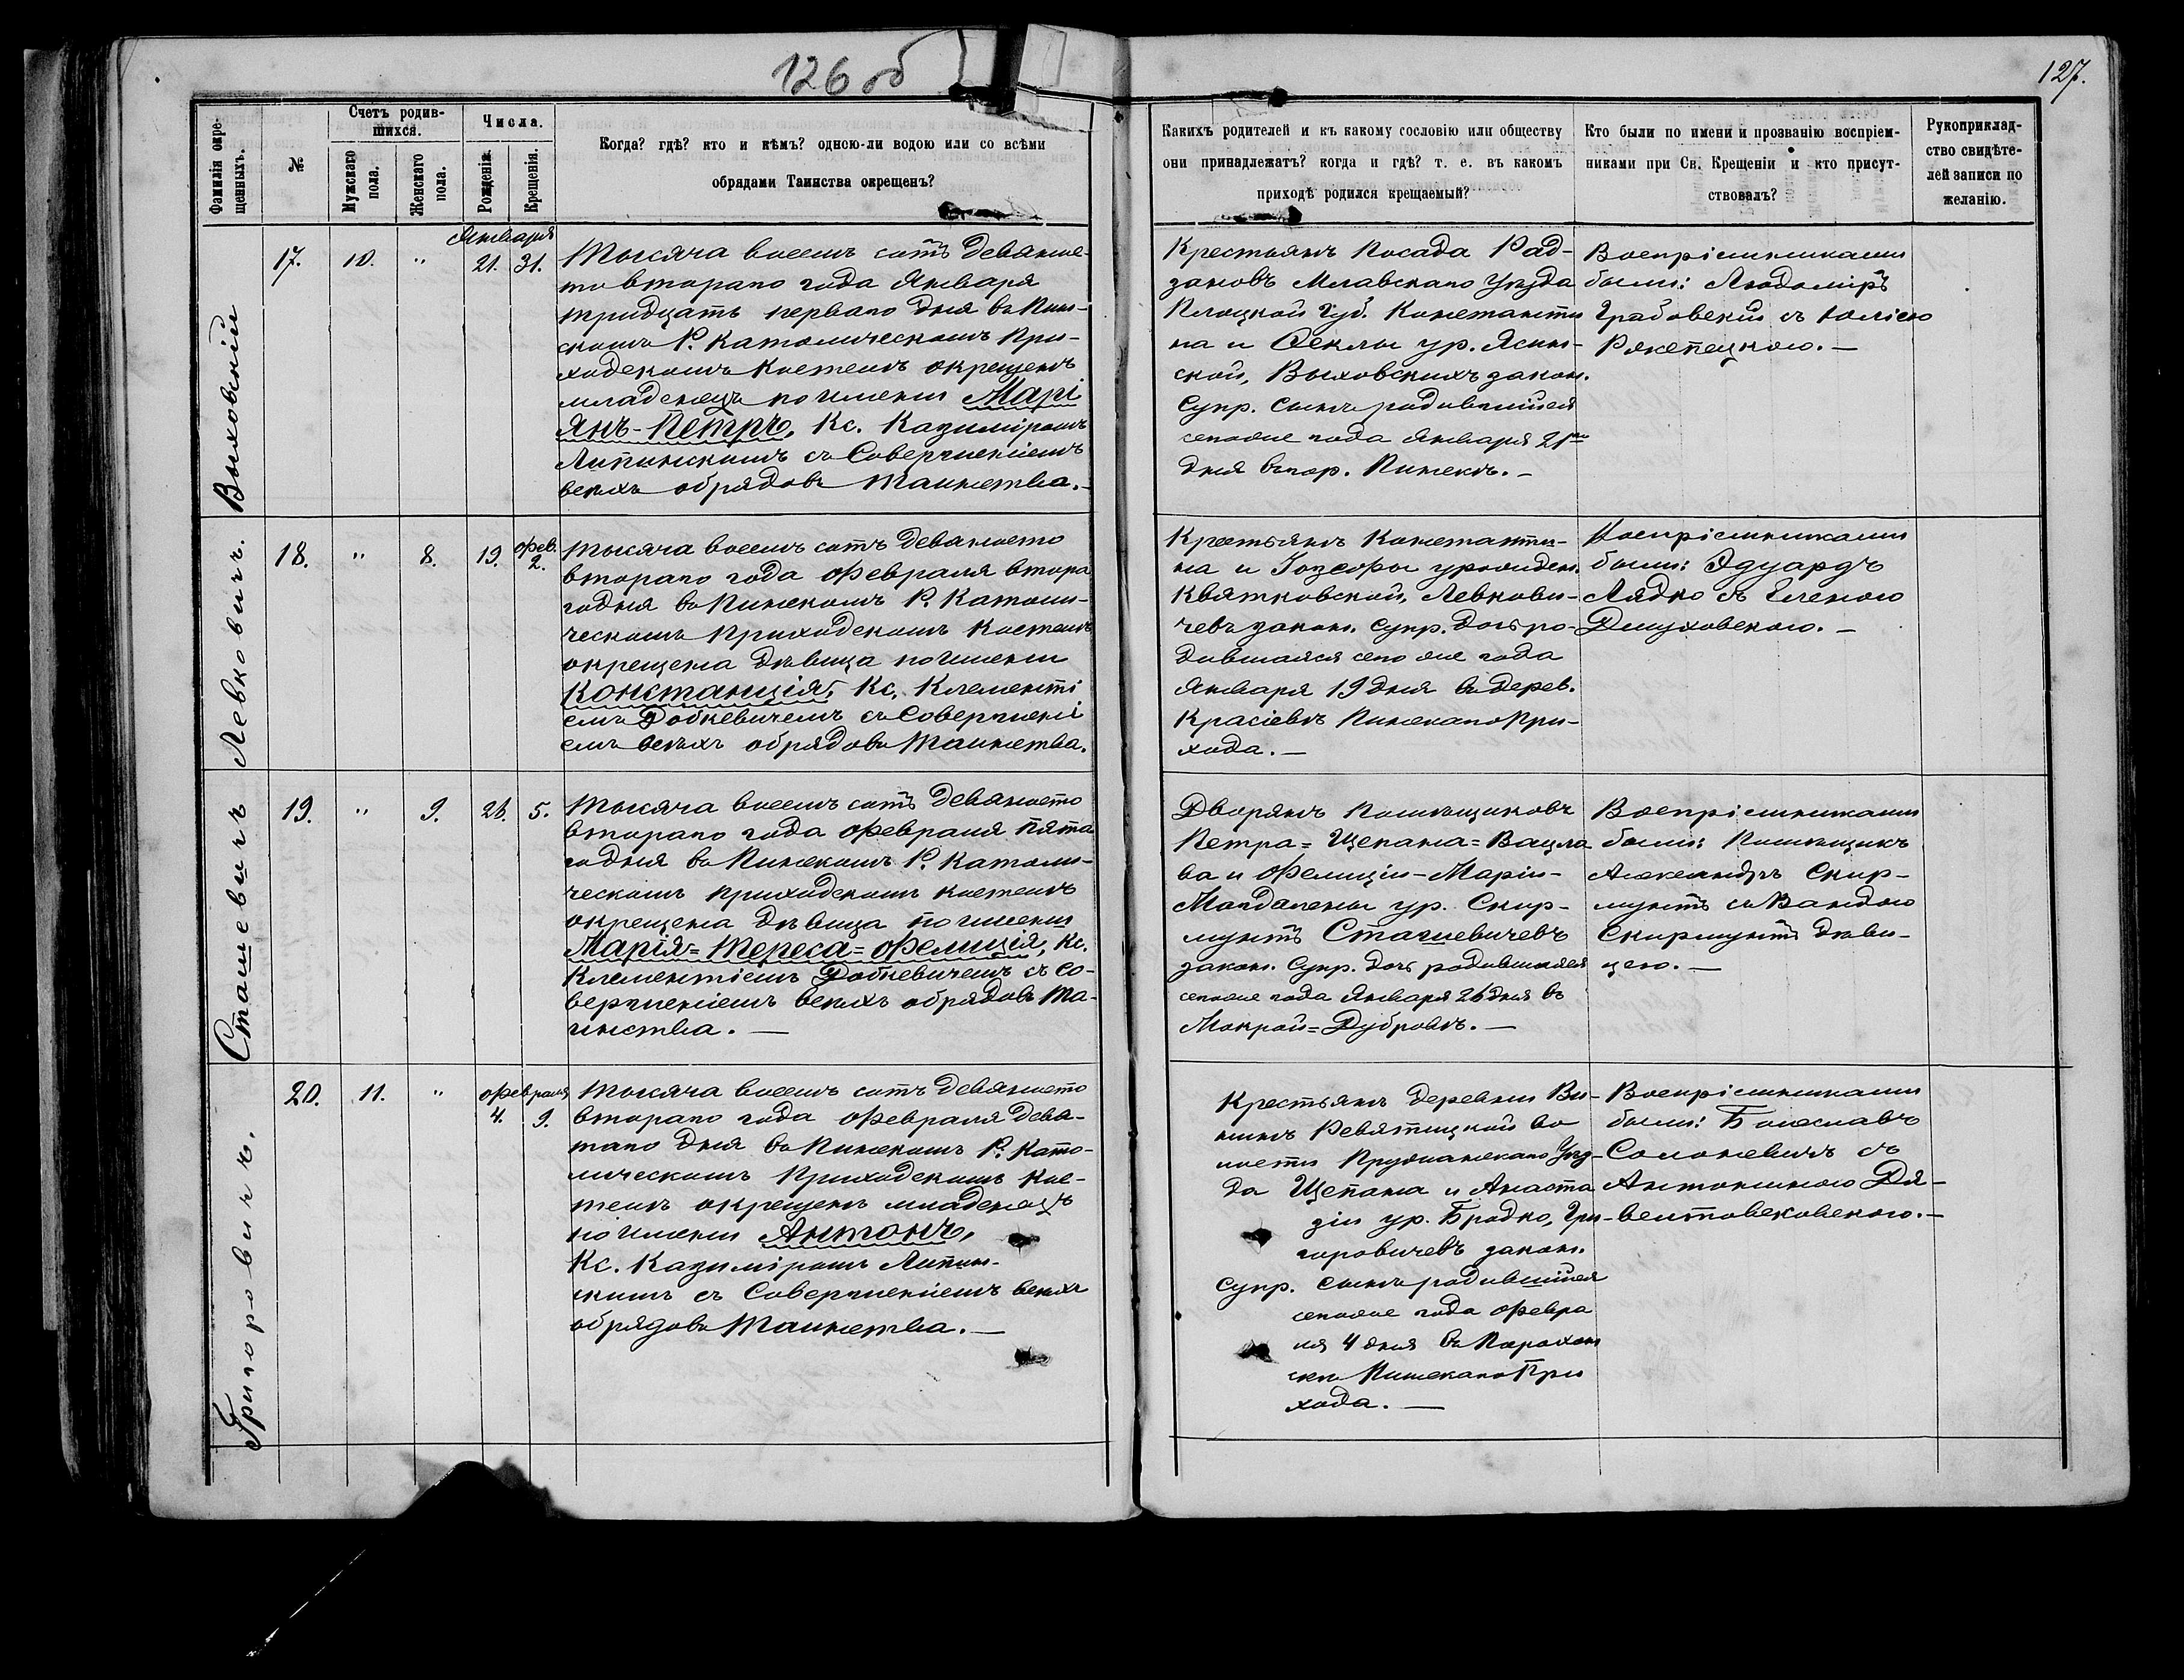 126 об
127.
Фамиліи окре-
щенныхъ.
№
Счетъ родив-
шихся.
Мужскаго
пола.
Женскаго
пола.
Числа.
Рожденія.
Крещенія.
Когда? гдѣ? кто и кѣмъ? одною-ли водою или со всѣми
обрядами Таинства окрещенъ?
Какихъ родителей и къ какому сословію или обществу
они принадлежатъ? когда и гдѣ? т. е. въ какомъ
приходѣ родился крещаемый?
Кто были по имени и прозванію воспріем-
никами при Св. Крещеніи и кто присут-
ствовалъ?
Рукоприклад-
ство свидѣте-
лей записи по
желанію.
Выховскій
17.
10.
"
Января
21. 31.
Тысяча восемь сотъ девяное-
то втораго года Января
тридцать перваго дня въ Пин-
скомъ Р. Католическомъ При-
ходскомъ Костелѣ окрещенъ
младенецъ по имени Марі
янъ-Петръ, Кс. Казиміромъ
Липинскимъ съ Совершеніемъ
всѣхъ обрядовъ Таинства.-
Крестьянъ Посада Рад-
зановъ Млавскаго Уѣзда
Плоцкой Губ. Константи
на и Феклы ур. Ясин-
ской, Выховскихъ закон.
Супр. сынъ родившійся
сегоже года Января 21го
дня въ гор. Пинскѣ.-
Воспріемниками
были: Людоміръ
Грабовскій съ Юліею
Левковичъ.
18.
"
8.
19.
Фев.
2.
Тысяча восемь сотъ девяносто
втораго года Февраля втора
го дня въ Пинскомъ Р. Католи-
ческомъ приходскомъ Костелѣ
окрещена дѣвица по имени
Констанція, Кс. Клементі
емъ Добкевичемъ съ Совершені
емъ всѣхъ обрядовъ Таинства.
Крестьянъ Константи-
на и Іозефы урожден.
Квятковской, Левкови-
чевъ закон. Супр. дочь ро-
дившаяся сегоже года
Января 19 дня въ дерев.
Красіевѣ Пинскаго При-
хода.-
Воспріемниками
были: Эдуардъ
Лядко съ Еленою
Дмуховскою.-
Сташевичъ
19.
"
9.
26.
5.
Тысяча восемь сотъ девяносто
втораго года Февраля пята
го дня въ Пинскомъ Р. Католи-
ческомъ приходскомъ костелѣ
окрещена дѣвица по имени
Марія=Тереса=Фелиція, Кс.
Клементіемъ Добкевичемъ съ со-
вершеніемъ всѣхъ обрядовъ Та-
инства.-
Дворянъ Помѣщиковъ
Петра=Щепана=Вацла
ва и Фелиціи-Маріи-
Магдалены ур. Скир-
мунтъ Сташевичевъ
закон. Супр. дочь родившаяся
сегоже года Января 26 дня въ
Мокрой=Дубровѣ.-
Воспріемниками
были: Помѣщикъ
Александръ Скир-
мунтъ съ Вандою
Скирмунтъ дѣви-
цею.-
Григоровичъ.
20.
11.
"
Февраля
4. 9.
Тысяча восемь сотъ девяносто
втораго года Февраля девя-
таго дня въ Пинскомъ Р. Като-
лическомъ Приходскомъ Кос-
телѣ окрещенъ младенецъ
по имени Антонъ,
Кс. Казиміромъ Липин-
скимъ съ Совершеніемъ всѣхъ
обрядовъ Таинства.-
Крестьянъ деревни Ви-
нинъ Ревятицкой во
лости Пружанскаго Уѣз-
да Щепана и Анаста
зіи ур. Бродко, Гри-
горовичевъ закон.
Супр. сынъ родившійся
сегоже года Февра
ля 4 дня въ Порохон
скѣ Пинскаго При
хода.-
Воспріемниками
были: Болеславъ
Солоневичъ съ
Антониною